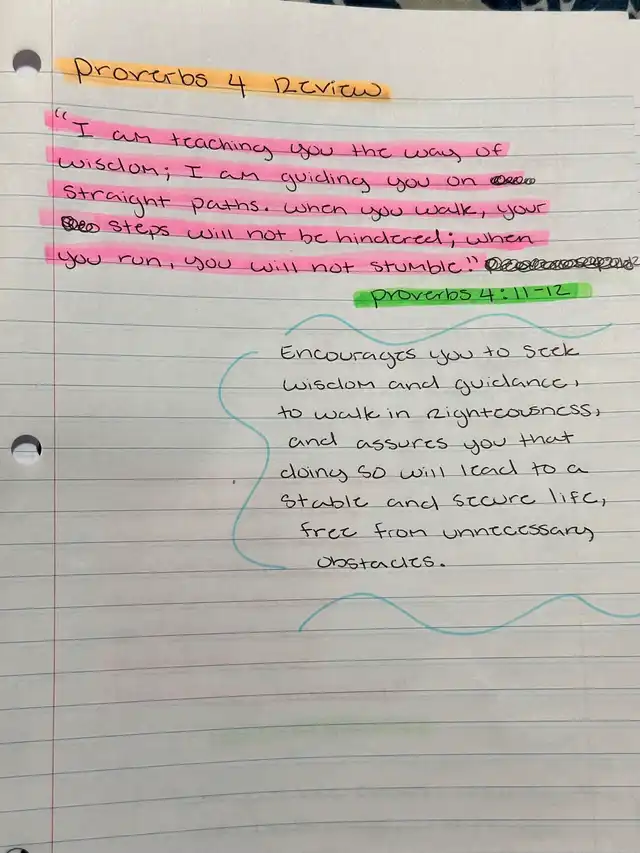 Proverbs 4 Review
"I am teaching you the way of
wisdom; I am guiding you on
straight paths. When you walk, your
steps will not be hindered; when
you run, you will not stumble."
Proverbs 4:11-12
Encourages you to seek
wisdom and guidance,
to walk in righteousness,
and assures you that
doing so will lead to a
stable and secure life,
free from unnecessary
obstacles.